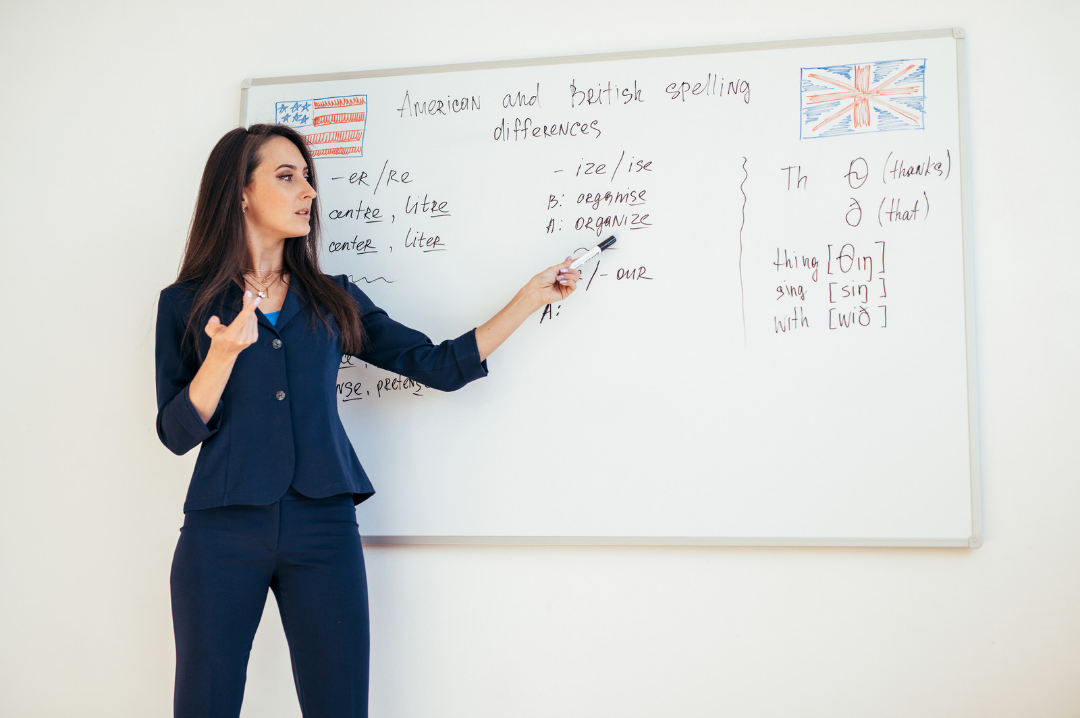 American and British spelling
differences
-er/re
centre, litre
center, liter
- ize/ise
B: organise
A: organize
/-our
A:
pretense
Th θ (thanks)
ð (that)
thing [θıŋ]
sing [siŋ]
with [wið]